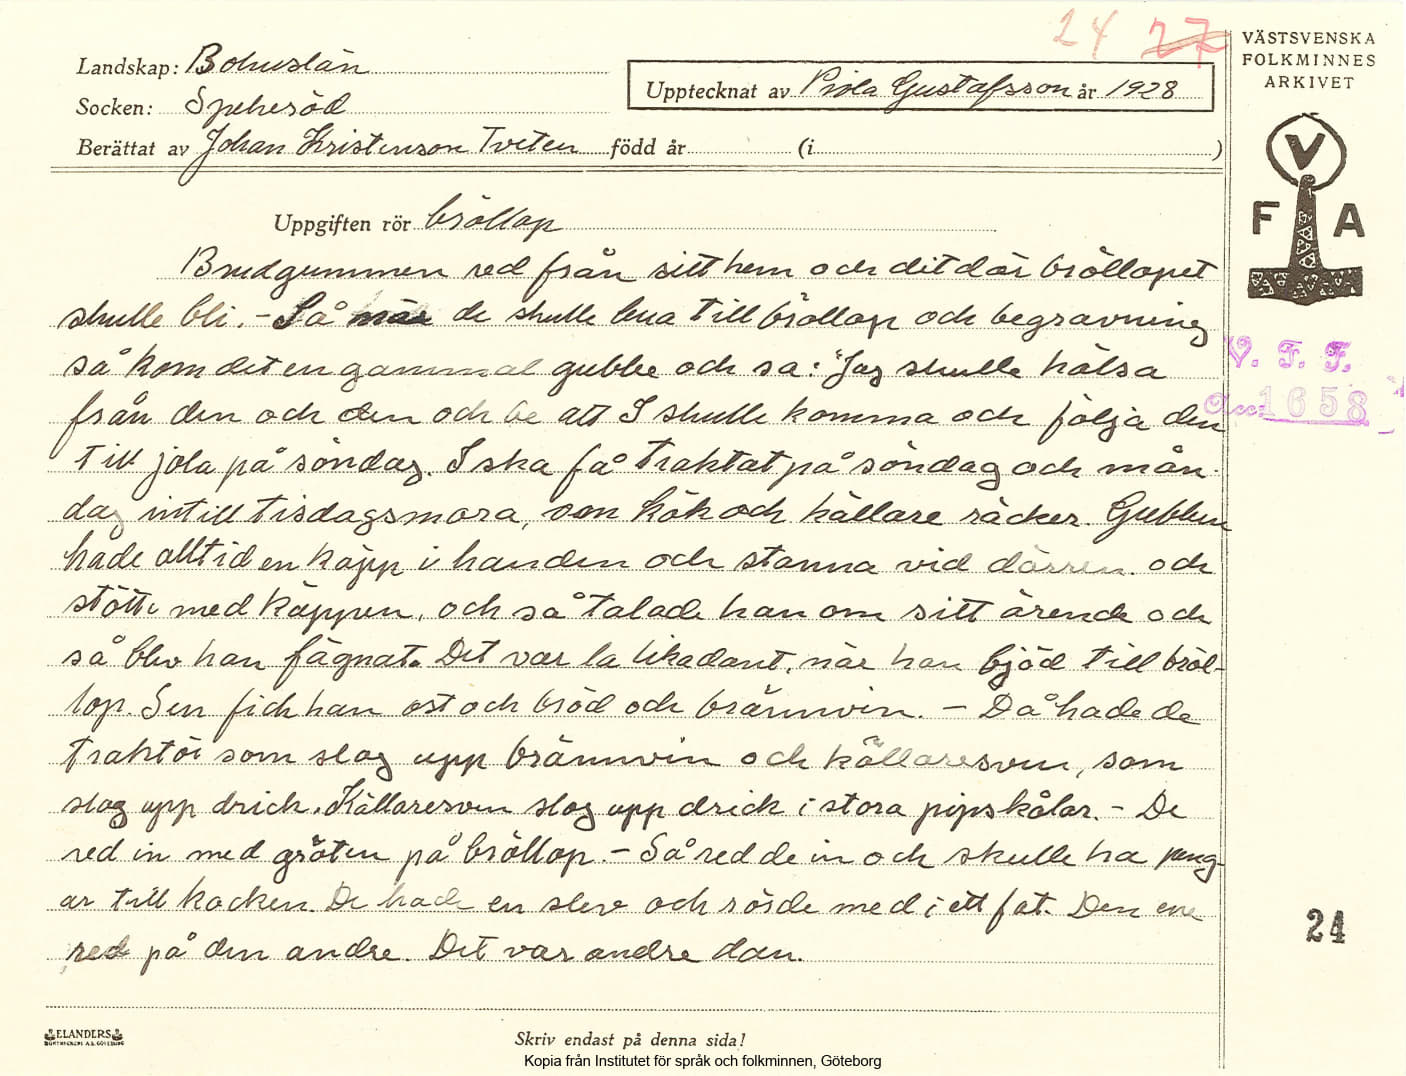 24 27
Landskap: Bohuslän
Socken: Spekeröd
Berättat av Johan Kristenson Tveten född år (i )
Upptecknat av Gustafsson år 1928
VÄSTSVENSKA
FOLKMINNES
ARKIVET
V
F A
Uppgiften rör bröllop
Brudgummen red från sitt hem och dit där bröllopet
skulle bli. - Så när de skulle bua till bröllop och begravning
så kom det en gammal gubbe och sa: "Jag skulle hälsa
från den och den och be att I skulle komma och följa den
till jola på söndag. I ska få traktat på söndag och mån-
dag intill tisdagsmora, om kök och källare räcker. Gubben
hade alltid en käpp i handen och stanna vid dörren och
stötte med käppen, och så talade han om sitt ärende och
så blev han fägnat. Det var la likadant, när han bjöd till bröl-
lop. Sen fick han ost och bröd och brännvin. - Då hade de
traktör som slog upp brännvin och källaresven, som
slog upp drick. Källaresven slog upp drick i stora pipskålar. - De
red in med gröten på bröllop. - Så red de in och skulle ha peng-
ar till kocken. De hade en slev och rörde med i ett fat. Den ene
red på den andre. Det var andre dan.
V. F. F.
Acc: 1658
24
ELANDERS
Skriv endast på denna sida!
Kopia från Institutet för språk och folkminnen, Göteborg